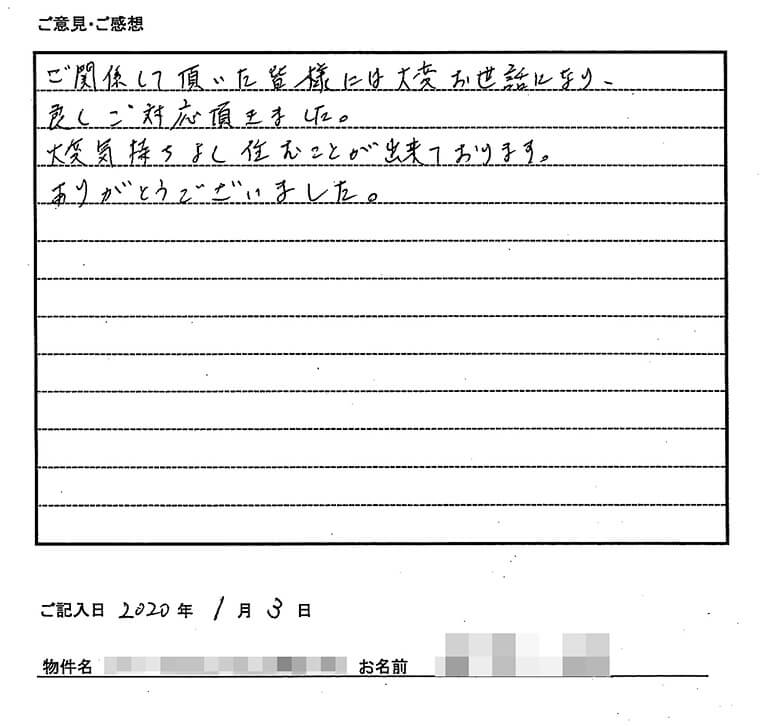 ご意見・ご感想
ご関係して頂いた皆様には大変お世話になり、
良しご対応頂きました。
大変気持ちよし住むことが出来ております。
ありがとうございました。
ご記入日 2020年 1月 3日
物件名 お名前